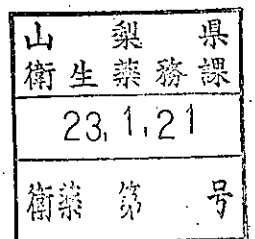 山梨県
衛生薬務課
23.1.21
衛薬第 号